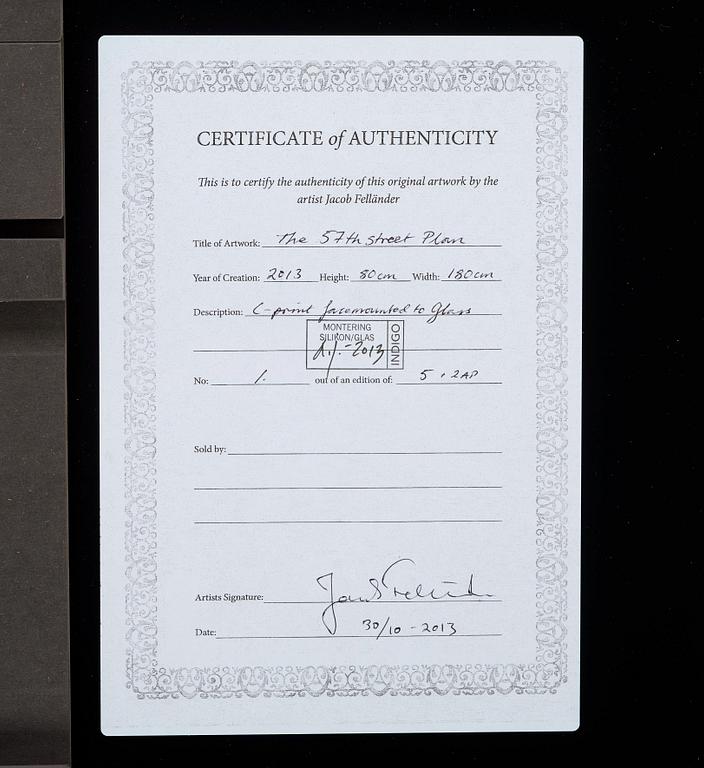 CERTIFICATE of AUTHENTICITY
This is to certify the authenticity of this original artwork by the
artist Jacob Felländer
Title of Artwork: The 57th street Plan
Year of Creation: 2013 Height: 80cm Width: 180cm
Description: C-print facemounted to Glass
MONTERING
SILIKON/GLAS
-2013
INDIGO
No: 1. out of an edition of: 5 + 2AP
Sold by:
Artists Signature:
Date: 30/10 - 2013